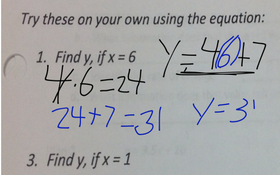 Try these on your own using the equation:
1. Find y, if x = 6 y = 4(6)+7
4·6=24
24+7=31 y=31
3. Find y, if x = 1